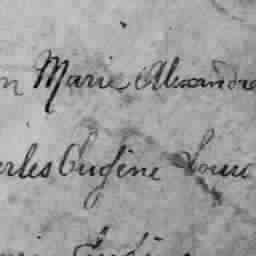 n Marie Alexandre
rles Eugène Louis